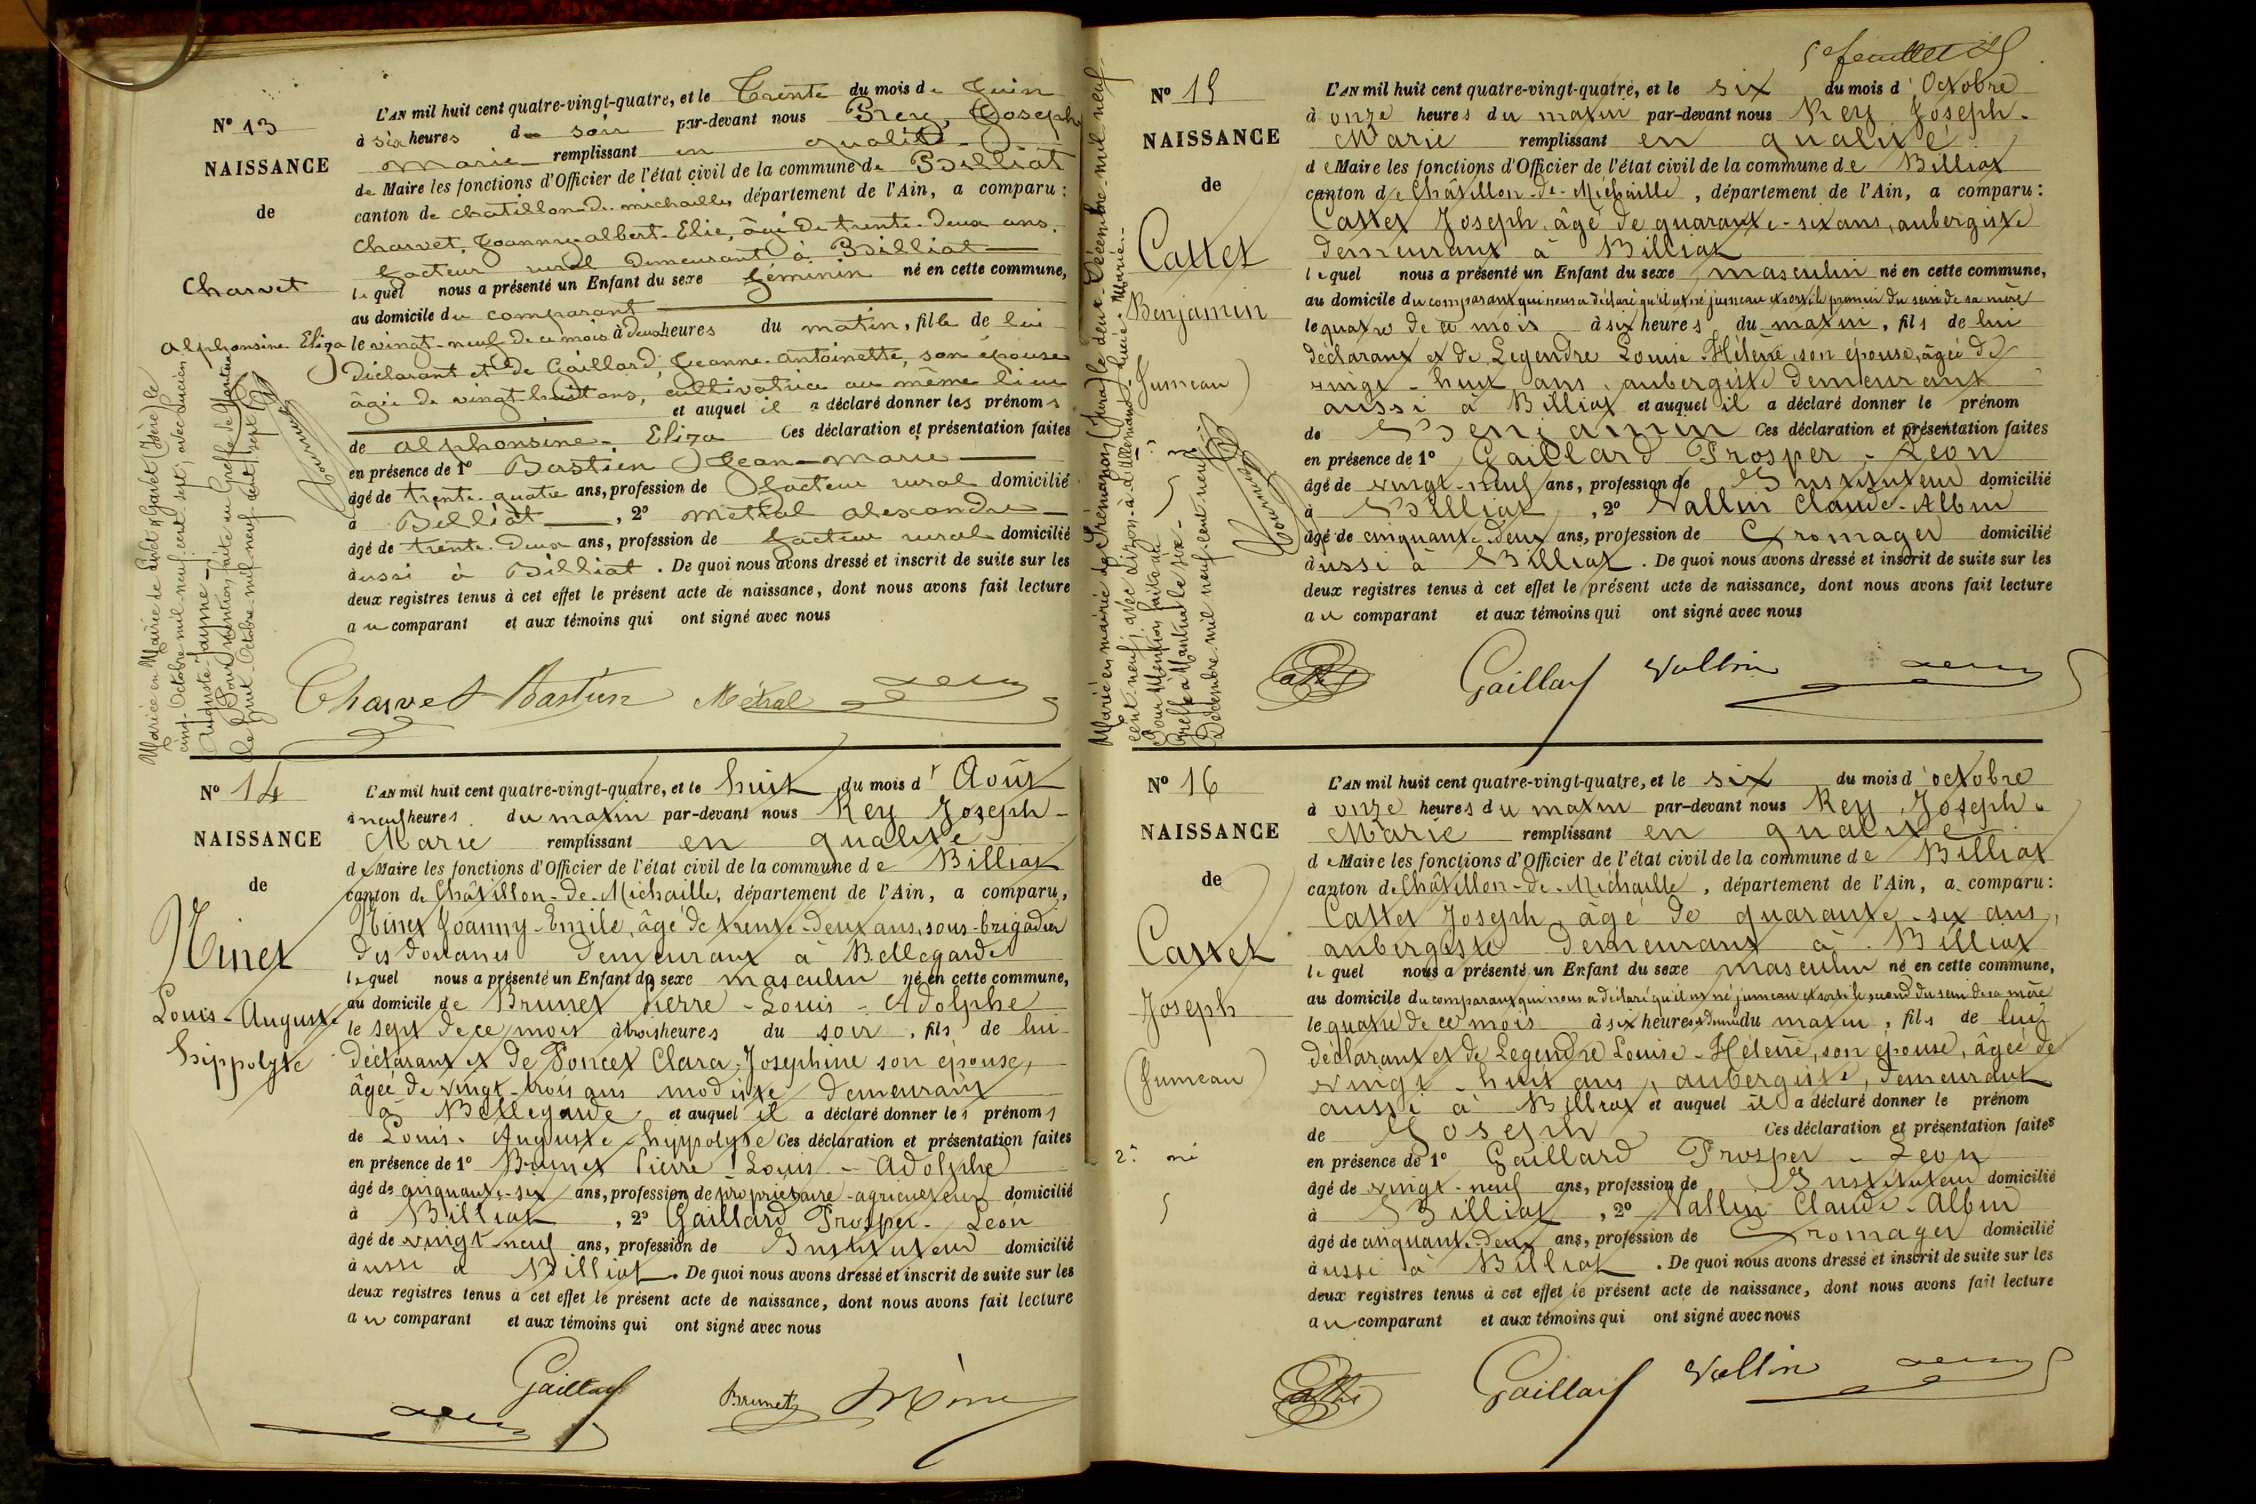 N° 13
NAISSANCE
de
Charvet
alphonsine Eliza
L'AN mil huit cent quatre-vingt-quatre, et le Trente du mois de Juin
à six heures du soir par-devant nous Rey, Joseph
Marie remplissant en qualité
de Maire les fonctions d'Officier de l'état civil de la commune de Billiat
canton de chatillon-de-michaille, département de l'Ain, a comparu :
Charvet, Joanny-albert-Elie, âgé de trente-deux ans,
facteur rural demeurant à Billiat
lequel nous a présenté un Enfant du sexe féminin né en cette commune,
au domicile du comparant
le vingt-neuf de ce mois à deux heures du matin, fille de lui
déclarant et de Gaillard, Jeanne-antoinette, son épouse
âgée de vingt-huit ans, cultivatrice au même lieu
et auquel il a déclaré donner les prénoms
de alphonsine-Eliza Ces déclaration et présentation faites
en présence de 1° Bastien Jean-Marie
âgé de trente-quatre ans, profession de facteur rural domicilié
à Billiat, 2° Métral alexandre
âgé de trente-deux ans, profession de facteur rural domicilié
aussi à Billiat. De quoi nous avons dressé et inscrit de suite sur les
deux registres tenus à cet effet le présent acte de naissance, dont nous avons fait lecture
au comparant et aux témoins qui ont signé avec nous
Charvet Bastien Métral
Mariée en Mairie de et Gavet (Isère) le
cinq-Octobre-mil-neuf-cent-sept, avec Lucien
Auguste-Jayne-
Pour mention faite au Greffe de Nantua
le huit-Octobre-mil-neuf-cent-sept
N° 14
NAISSANCE
de
Ninet
Louis-Auguste
hippolyte
L'AN mil huit cent quatre-vingt-quatre, et le huit du mois d'Août
à neuf heures du matin par-devant nous Rey Joseph-
Marie remplissant en qualité
de Maire les fonctions d'Officier de l'état civil de la commune de Billiat
canton de Châtillon-de-Michaille, département de l'Ain, a comparu,
Ninet Joanny-Emile, âgé de trente-deux ans, sous-brigadier
des douanes demeurant à Bellegarde
lequel nous a présenté un Enfant du sexe masculin né en cette commune,
au domicile de Brunet Pierre-Louis-Adolphe
le sept de ce mois à trois heures du soir, fils de lui
déclarant et de Poncet Clara-Josephine son épouse,
âgée de vingt-trois ans modiste demeurant
à Bellegarde et auquel il a déclaré donner les prénoms
de Louis-Auguste-hippolyte Ces déclaration et présentation faites
en présence de 1° Brunet Pierre Louis-Adolphe
âgé de cinquante-six ans, profession de propriétaire-agriculteur domicilié
à Billiat, 2° Gaillard Prosper-Leon
âgé de vingt-neuf ans, profession de Instituteur domicilié
aussi à Billiat. De quoi nous avons dressé et inscrit de suite sur les
deux registres tenus à cet effet le présent acte de naissance, dont nous avons fait lecture
au comparant et aux témoins qui ont signé avec nous
Gaillard
Brunet
5e feuillet
N° 15
NAISSANCE
de
Cattet
Benjamin
(Jumeau)
L'AN mil huit cent quatre-vingt-quatre, et le six du mois d'Octobre
à onze heures du matin par-devant nous Rey Joseph-
Marie remplissant en qualité
de Maire les fonctions d'Officier de l'état civil de la commune de Billiat
canton de Châtillon-de-Michaille, département de l'Ain, a comparu :
Cattet Joseph, âgé de quarante-six ans, aubergiste
demeurant à Billiat
lequel nous a présenté un Enfant du sexe masculin né en cette commune,
au domicile du comparant qui nous a déclaré qu'il est né jumeau et sorti le premier du sein de sa mère
le quatre de ce mois à six heures du matin, fils de lui
déclarant et de Legendre Louise-Hélène, son épouse, âgée de
vingt-huit ans, aubergiste demeurant
aussi à Billiat et auquel il a déclaré donner le prénom
de Benjamin Ces déclaration et présentation faites
en présence de 1° Gaillard Prosper-Leon
âgé de vingt-neuf ans, profession de Instituteur domicilié
à Billiat, 2° Vallin Claude-Albin
âgé de cinquante-deux ans, profession de Fromager domicilié
aussi à Billiat. De quoi nous avons dressé et inscrit de suite sur les
deux registres tenus à cet effet le présent acte de naissance, dont nous avons fait lecture
au comparant et aux témoins qui ont signé avec nous
Gaillard Vallin
Marié en mairie de (Jura) le deux-Décembre-mil-neuf
cent-neuf, avec
Pour Mention faite au
Greffe à Nantua le six-
Décembre-mil-neuf-cent-neuf
N° 16
NAISSANCE
de
Cattet
Joseph
(Jumeau)
2e né
L'AN mil huit cent quatre-vingt-quatre, et le six du mois d'octobre
à onze heures du matin par-devant nous Rey Joseph-
Marie remplissant en qualité
de Maire les fonctions d'Officier de l'état civil de la commune de Billiat
canton de Châtillon-de-Michaille, département de l'Ain, a comparu :
Cattet Joseph, âgé de quarante-six ans,
aubergiste demeurant à Billiat
lequel nous a présenté un Enfant du sexe masculin né en cette commune,
au domicile du comparant qui nous a déclaré qu'il est né jumeau et sorti le second du sein de sa mère
le quatre de ce mois à six heures et demie du matin, fils de lui
déclarant et de Legendre Louise-Hélène, son épouse, âgée de
vingt-huit ans, aubergiste, demeurant
aussi à Billiat et auquel il a déclaré donner le prénom
de Joseph Ces déclaration et présentation faites
en présence de 1° Gaillard Prosper-Leon
âgé de vingt-neuf ans, profession de Instituteur domicilié
à Billiat, 2° Vallin Claude-Albin
âgé de cinquante-deux ans, profession de Fromager domicilié
aussi à Billiat. De quoi nous avons dressé et inscrit de suite sur les
deux registres tenus à cet effet le présent acte de naissance, dont nous avons fait lecture
au comparant et aux témoins qui ont signé avec nous
Gaillard Vallin